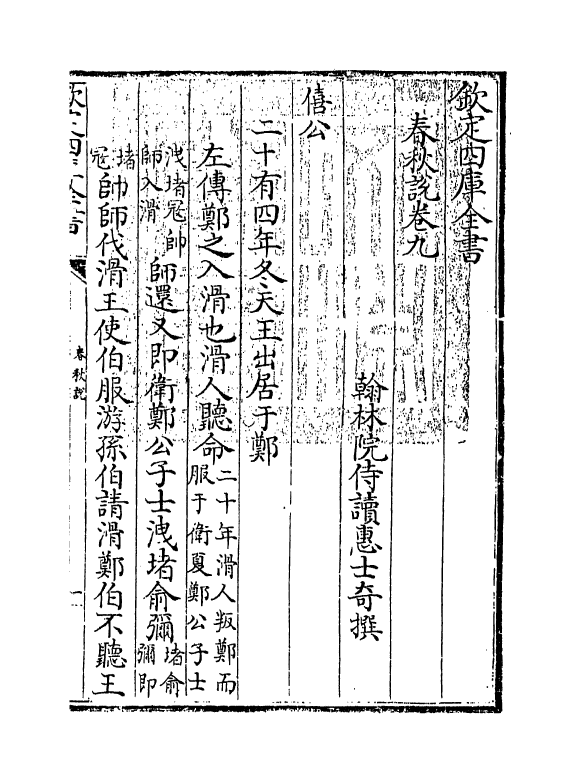 欽定四庫全書
春秋説卷九
翰林院侍讀惠士奇撰
僖公
二十有四年冬天王出居于鄭
左傳鄭之入滑也滑人聽命二十年滑人叛鄭而服于衛夏鄭公子士
洩堵冦帥師入滑師還又即衛鄭公子士洩堵俞彌堵俞彌即
堵冦帥師伐滑王使伯服游孫伯請滑鄭伯不聽王
欽定四庫全書
春秋説
一